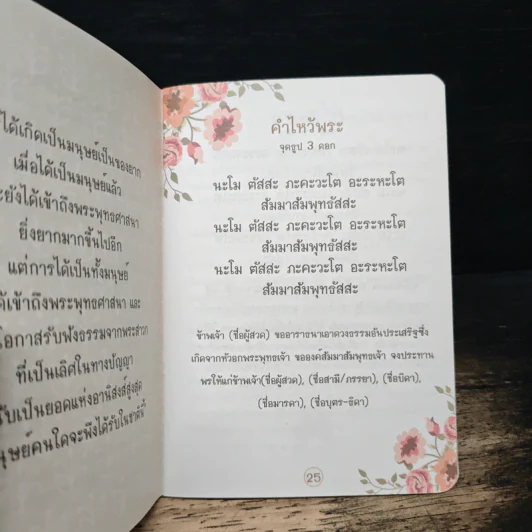 ได้เกิดเป็นมนุษย์เป็นของยาก
เมื่อได้เป็นมนุษย์แล้ว
ะยังได้เข้าถึงพระพุทธศาสนา
ยิ่งยากมากขึ้นไปอีก
แต่การได้เป็นทั้งมนุษย์
ด้เข้าถึงพระพุทธศาสนา และ
โอกาสรับฟังธรรมจากพระสาวก
ที่เป็นเลิศในทางปัญญา
รับเป็นยอดแห่งอานิสงส์สูงสุด
นุษย์คนใดจะพึงได้รับในชาตินี้
คำไหว้พระ
จุดธูป 3 ดอก
นะโม ตัสสะ ภะคะวะโต อะระหะโต
สัมมาสัมพุทธัสสะ
นะโม ตัสสะ ภะคะวะโต อะระหะโต
สัมมาสัมพุทธัสสะ
นะโม ตัสสะ ภะคะวะโต อะระหะโต
สัมมาสัมพุทธัสสะ
ข้าพเจ้า (ชื่อผู้สวด) ขออาราธนาเอาดวงธรรมอันประเสริฐซึ่ง
เกิดจากหัวอกพระพุทธเจ้า ขององค์สัมมาสัมพุทธเจ้า จงประทาน
พรให้แก่ข้าพเจ้า(ชื่อผู้สวด), (ชื่อสามี/ภรรยา), (ชื่อบิดา),
(ชื่อมารดา), (ชื่อบุตร-ธิดา)
25